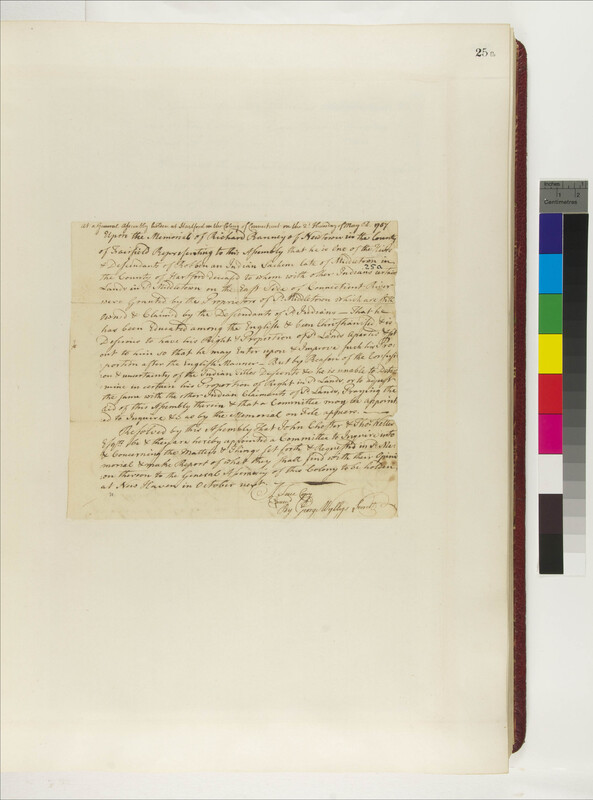 25 B.
At a General Assembly holden at Hartford in the Colony of Connecticut on the 2d Thursday of May AD. 1767
Upon the Memorial of Richard Ranney of Newtown in the County
of Fairfield Representing to this Assembly that he is One of the
& Descendants of an Indian Sachem late of Middletown in
25a
the County of Hartford deceased to whom with other Indians
Lands in sd Middletown on the East Side of Connecticut River
were Granted by the Proprietors of sd Middletown which are still
Owned & Claimed by the Descendants of sd Indians — That he
has been Educated among the English & been Christianised & is
Desirous to have his Right & Proportion of sd Lands Aparted & Set
out to him so that he may Enter upon & Improve such his Pro-
portion after the English Manner — But by Reason of the Confusi-
on & uncertainty of the Indian Descents &c he is unable to Deter-
mine in certain his Proportion of Right in sd Lands or to adjust
the same with the other Indian Claimants of sd Lands, Praying the
Aid of this Assembly therein & that a Committee may be Appoint-
ed to Inquire &c as by the Memorial on File appears. —
Resolved by this Assembly That John Chester &
Esqrs be & they are hereby appointed a Committee to Inquire into
& Concerning the Matters & Things set forth & Requested in sd Me-
morial & make Report of what they shall find with their Opini-
on thereon to the General Assembly of this Colony to be holden
at New Haven in October next.
A True Copy
Examd
By George Wyllys Secrety
Inches
1
2
Centimetres